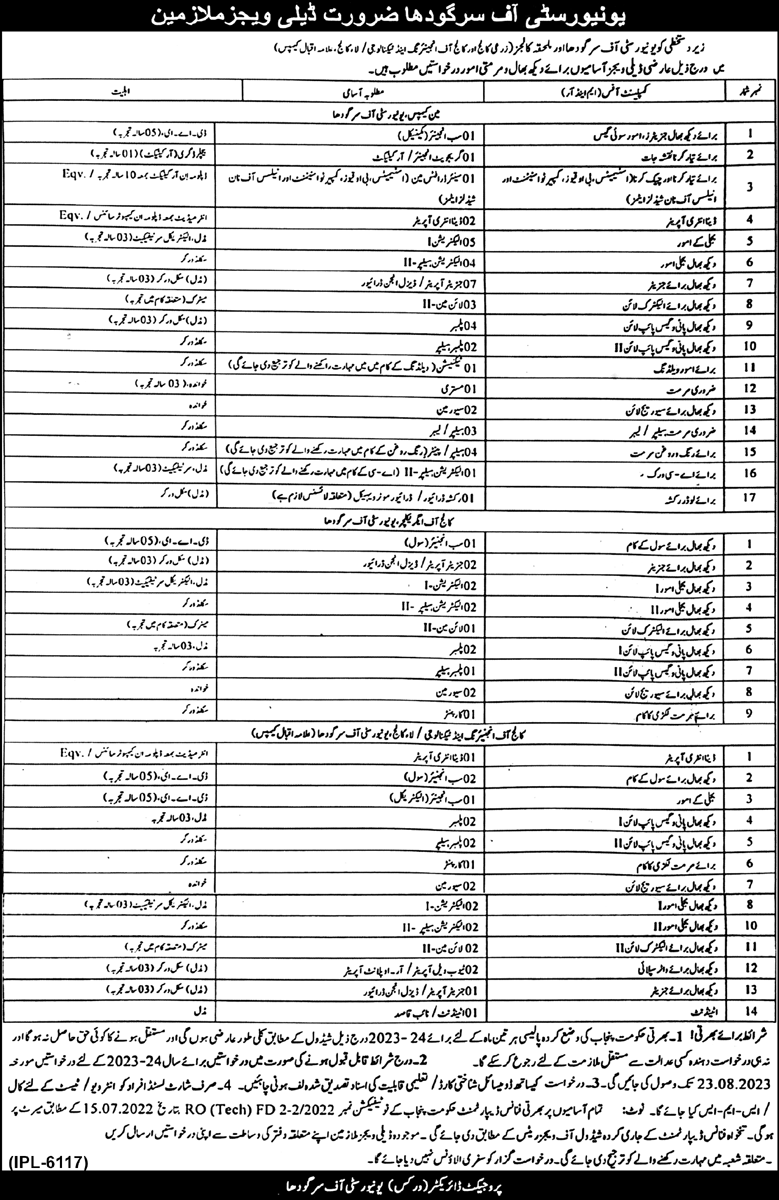 یونیورسٹی آف سرگودھا ضرورت ڈیلی ویجز ملازمین
زیر دستخطی کو یونیورسٹی آف سرگودھا اور ملحقہ کالجز (زرعی کالج اور کالج آف انجینئرنگ اینڈ ٹیکنالوجی/ لاء کالج، علامہ اقبال کیمپس)
میں درج ذیل عارضی ڈیلی ویجز آسامیوں برائے دیکھ بھال و مرمتی امور درخواستیں مطلوب ہیں۔
نمبر شمار کمپلینٹ آفس (ایم اینڈ آر) مطلوبہ آسامی اہلیت
مین کیمپس، یونیورسٹی آف سرگودھا
1 برائے دیکھ بھال جنریٹرز، امور سوئی گیس 01 سب انجینئر (مکینیکل) ڈی۔اے۔ای، (05 سالہ تجربہ)
2 برائے تیار کرنا نقشہ جات 01 گریجویٹ انجینئر/ آرکیٹیکٹ بیچلر ڈگری (آرکیٹیکٹ) (01 سالہ تجربہ)
3 برائے تیار کرنا اور چیک کرنا (اسٹیمیٹس، بی او کیوز، کمپیریٹو اسٹیٹمنٹ اور انیلسس آف نان شیڈلز ایٹمز) 01 سینئر ڈرافٹس مین (اسٹیمیٹس، بی او کیوز، کمپیریٹو اسٹیٹمنٹ اور انیلسس آف نان شیڈلز ایٹمز) ڈپلومہ ان آرکیٹیکٹ بمعہ 10 سالہ تجربہ / Eqv.
4 ڈیٹا انٹری آپریٹر 02 ڈیٹا انٹری آپریٹر انٹرمیڈیٹ بمعہ ڈپلومہ ان کمپیوٹر سائنس / Eqv.
5 بجلی کے امور 05 الیکٹریشن I مڈل، الیکٹریکل سرٹیفیکیٹ (03 سالہ تجربہ)
6 دیکھ بھال بجلی امور 04 الیکٹریشن ہیلپر -II سکلڈ ورکر
7 دیکھ بھال برائے جنریٹر 07 جنریٹر آپریٹر/ ڈیزل انجن ڈرائیور (مڈل) سکل ورکر (03 سالہ تجربہ)
8 دیکھ بھال برائے الیکٹرک لائن 03 لائن مین-II میٹرک (متعلقہ کام میں تجربہ)
9 دیکھ بھال پانی و گیس پائپ لائن 04 پلمبر (مڈل) سکل ورکر (03 سالہ تجربہ)
10 دیکھ بھال پانی و گیس پائپ لائن II 02 پلمبر ہیلپر سکلڈ ورکر
11 برائے امور ویلڈنگ 01 ٹیکنیشن (ویلڈنگ کے کام میں میں مہارت رکھنے والے کو ترجیح دی جائے گی) سکلڈ ورکر
12 ضروری مرمت 01 مستری خواندہ، (03 سالہ تجربہ)
13 دیکھ بھال برائے سیوریج لائن 02 سیور مین خواندہ
14 ضروری مرمت ہیلپر / لیبر 03 ہیلپر / لیبر سکلڈ ورکر
15 برائے رنگ و روغن مرمت 04 ہیلپر/ پینٹر (رنگ روغن کے کام میں مہارت رکھنے والے کو ترجیح دی جائے گی) سکلڈ ورکر
16 برائے اے-سی ورک 01 الیکٹریشن ہیلپر-II (اے-سی کے کام میں مہارت رکھنے والے کو ترجیح دی جائے گی) مڈل، سرٹیفیکیٹ (03 سالہ تجربہ)
17 برائے لوڈر رکشہ 01 رکشہ ڈرائیور/ ڈرائیور موٹر ویہیکل (متعلقہ لائسنس لازم ہے) (مڈل) سکل ورکر
کالج آف ایگریکلچر، یونیورسٹی آف سرگودھا
1 دیکھ بھال برائے سول کے کام 01 سب انجینئر (سول) ڈی۔اے۔ای، (05 سالہ تجربہ)
2 دیکھ بھال برائے جنریٹر 02 جنریٹر آپریٹر/ ڈیزل انجن ڈرائیور (مڈل) سکل ورکر (03 سالہ تجربہ)
3 دیکھ بھال بجلی امور I 02 الیکٹریشن -I مڈل، الیکٹریکل سرٹیفیکیٹ (03 سالہ تجربہ)
4 دیکھ بھال بجلی امور II 02 الیکٹریشن ہیلپر -II سکلڈ ورکر
5 دیکھ بھال برائے الیکٹرک لائن 01 لائن مین-II میٹرک (متعلقہ کام میں تجربہ)
6 دیکھ بھال پانی و گیس پائپ لائن I 02 پلمبر مڈل، 03 سالہ تجربہ
7 دیکھ بھال پانی و گیس پائپ لائن II 01 پلمبر ہیلپر سکلڈ ورکر
8 دیکھ بھال برائے سیوریج لائن 02 سیور مین خواندہ
9 برائے مرمت لکڑی کا کام 01 کارپنٹر سکلڈ ورکر
کالج آف انجینئرنگ اینڈ ٹیکنالوجی / لاء کالج، یونیورسٹی آف سرگودھا (علامہ اقبال کیمپس)
1 ڈیٹا انٹری آپریٹر 01 ڈیٹا انٹری آپریٹر انٹرمیڈیٹ بمعہ ڈپلومہ ان کمپیوٹر سائنس / Eqv.
2 دیکھ بھال برائے سول کے کام 02 سب انجینئر (سول) ڈی۔اے۔ای، (05 سالہ تجربہ)
3 بجلی کے امور 01 سب انجینئر (الیکٹریکل) ڈی۔اے۔ای، (05 سالہ تجربہ)
4 دیکھ بھال پانی و گیس پائپ لائن I 02 پلمبر مڈل، 03 سالہ تجربہ
5 دیکھ بھال پانی و گیس پائپ لائن II 02 پلمبر ہیلپر سکلڈ ورکر
6 برائے مرمت لکڑی کا کام 01 کارپنٹر سکلڈ ورکر
7 دیکھ بھال برائے سیوریج لائن 02 سیور مین خواندہ
8 دیکھ بھال بجلی امور I 02 الیکٹریشن-I مڈل، الیکٹریکل سرٹیفیکیٹ (03 سالہ تجربہ)
10 دیکھ بھال بجلی امور II 02 الیکٹریشن ہیلپر -II سکلڈ ورکر
11 دیکھ بھال برائے الیکٹرک لائن II 02 لائن مین-II میٹرک (متعلقہ کام میں تجربہ)
12 دیکھ بھال برائے واٹر سپلائی 02 ٹیوب ویل آپریٹر/ آر۔او پلانٹ آپریٹر (مڈل) سکل ورکر (03 سالہ تجربہ)
13 دیکھ بھال برائے جنریٹر 01 جنریٹر آپریٹر/ ڈیزل انجن ڈرائیور (مڈل) سکل ورکر (03 سالہ تجربہ)
14 اٹینڈنٹ 01 اٹینڈنٹ/ نائب قاصد مڈل
شرائط برائے بھرتی! 1۔ بھرتی حکومت پنجاب کی وضع کردہ پالیسی ہر تین ماہ کے لئے برائے 24-2023 درج ذیل شیڈول کے مطابق کلی طور عارضی ہوں گی اور مستقل ہونے کا کوئی حق حاصل نہ ہوگا اور
نہ ہی درخواست دہندہ کسی عدالت سے مستقل ملازمت کے لئے رجوع کر سکے گا۔ 2۔ درج شرائط قابل قبول ہونے کی صورت میں درخواستیں برائے سال 24-2023 کے لئے درخواستیں مورخہ
23.08.2023 تک وصول کی جائیں گی۔ 3۔ درخواست کیساتھ ڈومیسائل شناختی کارڈ / تعلیمی قابلیت کی اسناد تصدیق شدہ لف ہونی چاہئیں۔ 4۔ صرف شارٹ لسٹڈ افراد کو انٹرویو / ٹیسٹ کے لئے کال
/ ایس۔ایم۔ایس کیا جائے گا۔ نوٹ: تمام آسامیوں پر بھرتی فنانس ڈیپارٹمنٹ حکومت پنجاب کے نوٹیفکیشن نمبر RO (Tech) FD 2-2/2022 بتاریخ 15.07.2022 کے مطابق میرٹ پر
ہو گی۔ تنخواہ فنانس ڈیپارٹمنٹ کے جاری کردہ شیڈول آف ویجز ریٹس کے مطابق دی جائے گی۔ موجودہ ڈیلی ویجز ملازمین اپنے متعلقہ دفتر کی وساطت سے اپنی درخواستیں ارسال کریں
۔ متعلقہ شعبہ میں مہارت رکھنے والے کو ترجیح دی جائے گی۔ درخواست گزار کو سفری الاؤنس نہیں دیا جائے گا۔
(IPL-6117)
پروجیکٹ ڈائریکٹر (ورکس) یونیورسٹی آف سرگودھا